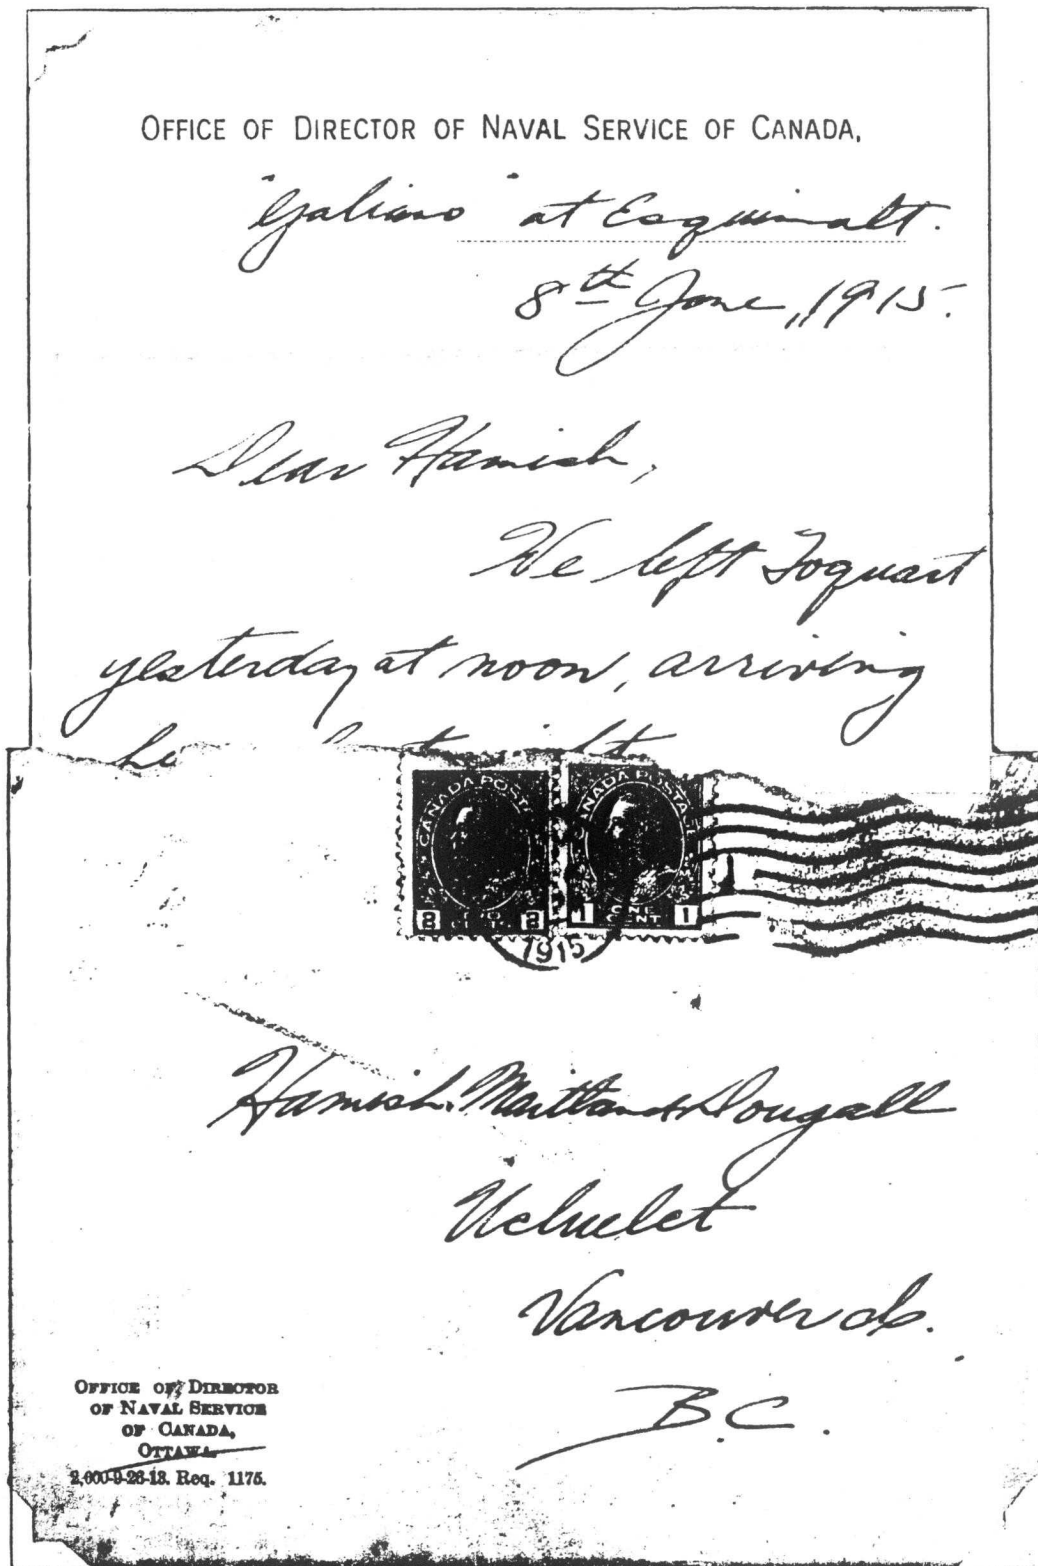 OFFICE OF DIRECTOR OF NAVAL SERVICE OF CANADA,
"Galiano" at Esquimalt.
8th June, 1915.
Dear Hamish,
We left Toquart
yesterday at noon, arriving
CANADA POSTAGE CANADA POSTAGE
2 2 1 CENT 1
1915
Hamish Maitland Dougall
Ucluelet
Vancouver Is.
B.C.
OFFICE OF DIRECTOR
OF NAVAL SERVICE
OF CANADA,
OTTAWA.
2,000-9-26-13. Req. 1175.